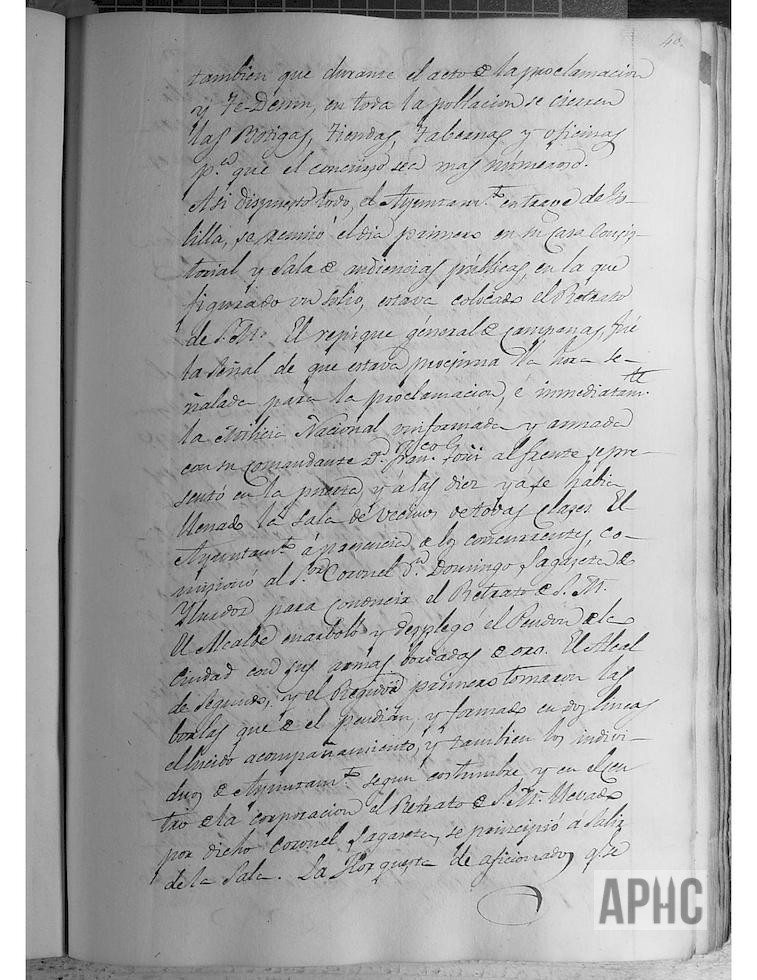 40.
tambien que durante el acto de la proclamacion
y Te-Deum, en toda la poblacion se cierren
las Botigas, Tiendas, Tabernas y oficinas
p.ª que el concurso sea mas númeroso.
Asi dispuesto todo, el Ayuntam.to en trage de Go-
lilla, se reunió el dia primero en su Casa Consis-
torial y Sala de audiencias públicas, en la que
figurado un Solio, estava colocado el Retrato
de S. M. El repique géneral de Campanas, fué
la Señal de que estava procsima la hora se-
ñalada para la proclamacion, é inmediatam.te
la Milicia Nacional uniformada y armada
con su comandante D.n Fran.co al frente se pre-
sentó en la puerta, y a las diez ya se habia
llenado la Sala de vecinos de todas clases. El
Ayuntam.to á presencia de los concurrentes, co-
misionó al S.or Coronel D.n Domingo Lagareta de
para conducir el Retrato de S. M.
El Alcalde enarboló y desplegó el Pendon de la
Ciudad con sus armas bordadas de oro. El Alcal
de Segundo, y el Regidor primero tomaron las
borlas que de el pendian, y formado en dos lineas
el lucido acompañamiento, y tambien los indivi-
duos de Ayuntam.to segun costumbre y en el cen
tro de la corporacion el Retrato de S. M. llevado
por dicho Coronel Lagareta, se principió á Salir
de la Sala. La Horquesta de aficionados q.e se
APHC